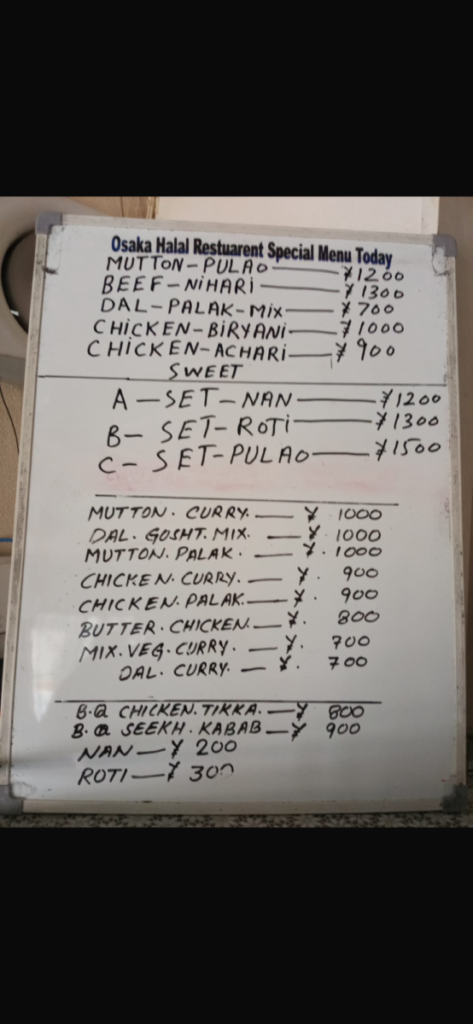 Osaka Halal Restuarent Special Menu Today
MUTTON-PULAO — ¥1200
BEEF-NIHARI — ¥1300
DAL-PALAK-MIX — ¥700
CHICKEN-BIRYANI — ¥1000
CHICKEN-ACHARI — ¥900
SWEET
A-SET-NAN — ¥1200
B-SET-ROTI — ¥1300
C-SET-PULAO — ¥1500
MUTTON. CURRY. — ¥ 1000
DAL. GOSHT. MIX. — ¥. 1000
MUTTON. PALAK. — ¥. 1000
CHICKEN. CURRY. — ¥. 900
CHICKEN. PALAK. — ¥. 900
BUTTER. CHICKEN. — ¥. 800
MIX. VEG. CURRY. — ¥. 700
DAL. CURRY. — ¥. 700
B.Q CHICKEN. TIKKA. — ¥ 800
B.Q SEEKH. KABAB — ¥ 900
NAN — ¥ 200
ROTI — ¥ 300